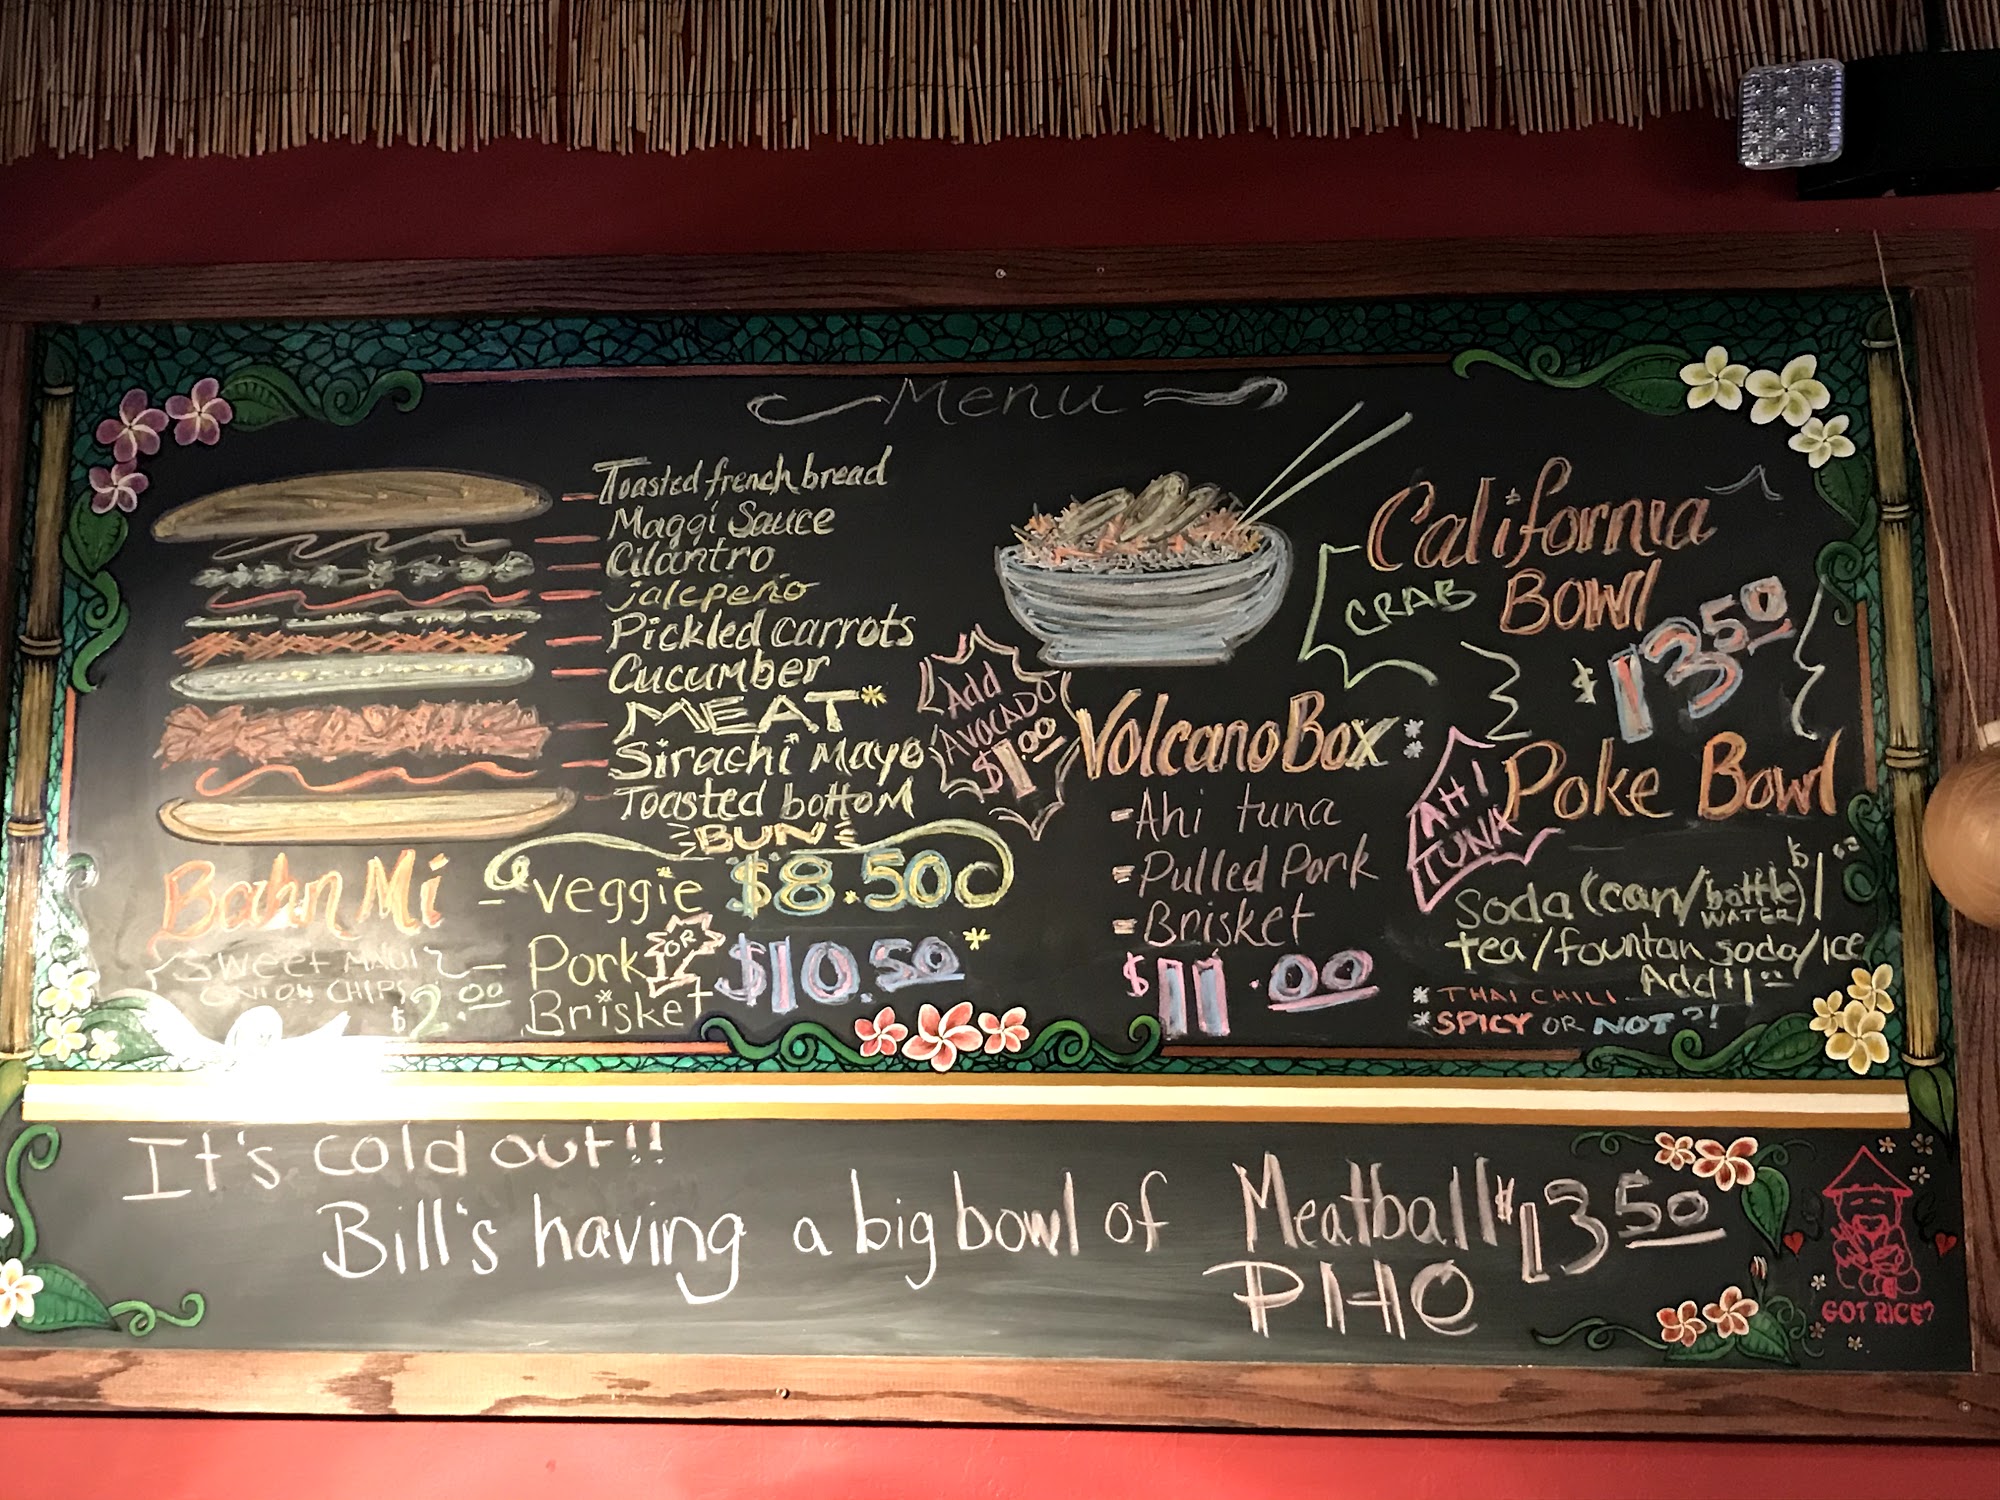 Menu
Toasted french bread
Maggi Sauce
Cilantro
jalepeño
Pickled carrots
Cucumber
MEAT*
Sirachi Mayo
Toasted bottom
BUN
Bahn Mi
veggie $8.50
Pork OR
Brisket
$10.50*
SWEET MAUI
ONION CHIPS
$2.00
Add
AVOCADO
$1.00
Volcano Box
- Ahi tuna
- Pulled Pork
- Brisket
$11.00
California
CRAB BOWl
$13.50
AHI
TUNA
Poke Bowl
Soda (can/bottle) $1.00
WATER
tea/fountan soda/ice
Add $1.00
*THAI CHILI
*SPICY OR NOT?!
It's cold out!!
Bill's having a big bowl of Meatball $13.50
PHO
GOT RICE?